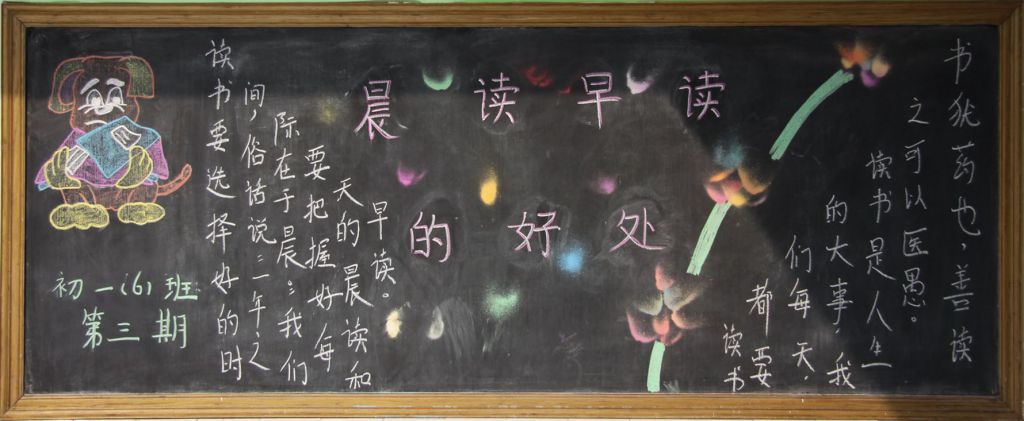 晨读早读
的好处
书犹药也，善读
之可以医愚。
读书是人生
的大事，我
们每天，
都要
读书
读书要选择好的时
间，俗话说：一年之
际在于晨。”我们
要把握好每
天的晨读和
早读。
初一(6)班
第三期